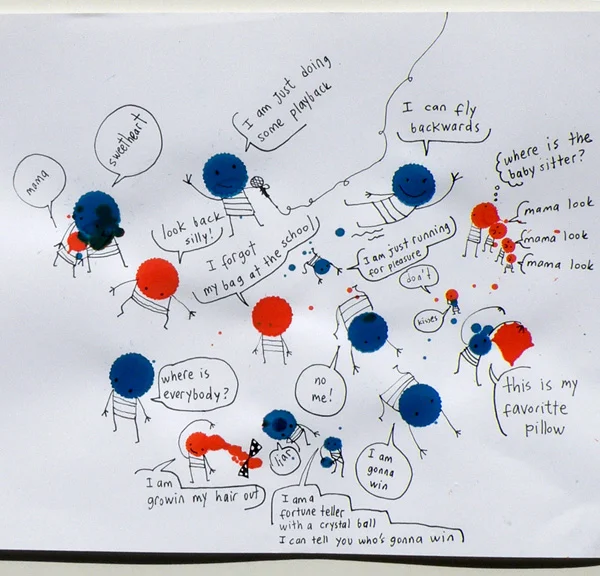 I am just doing
some playback
I can fly
backwards
sweetheart
mama
where is the
baby sitter?
mama look
mama look
mama look
look back
silly!
I forgot
my bag at the school
I am just running
for pleasure
don't
kisses
where is
everybody?
no
me!
this is my
favoritte
pillow
I am
gonna
win
liar!
I am
growin my hair out
I am a
fortune teller
with a crystal ball
I can tell you who's gonna win